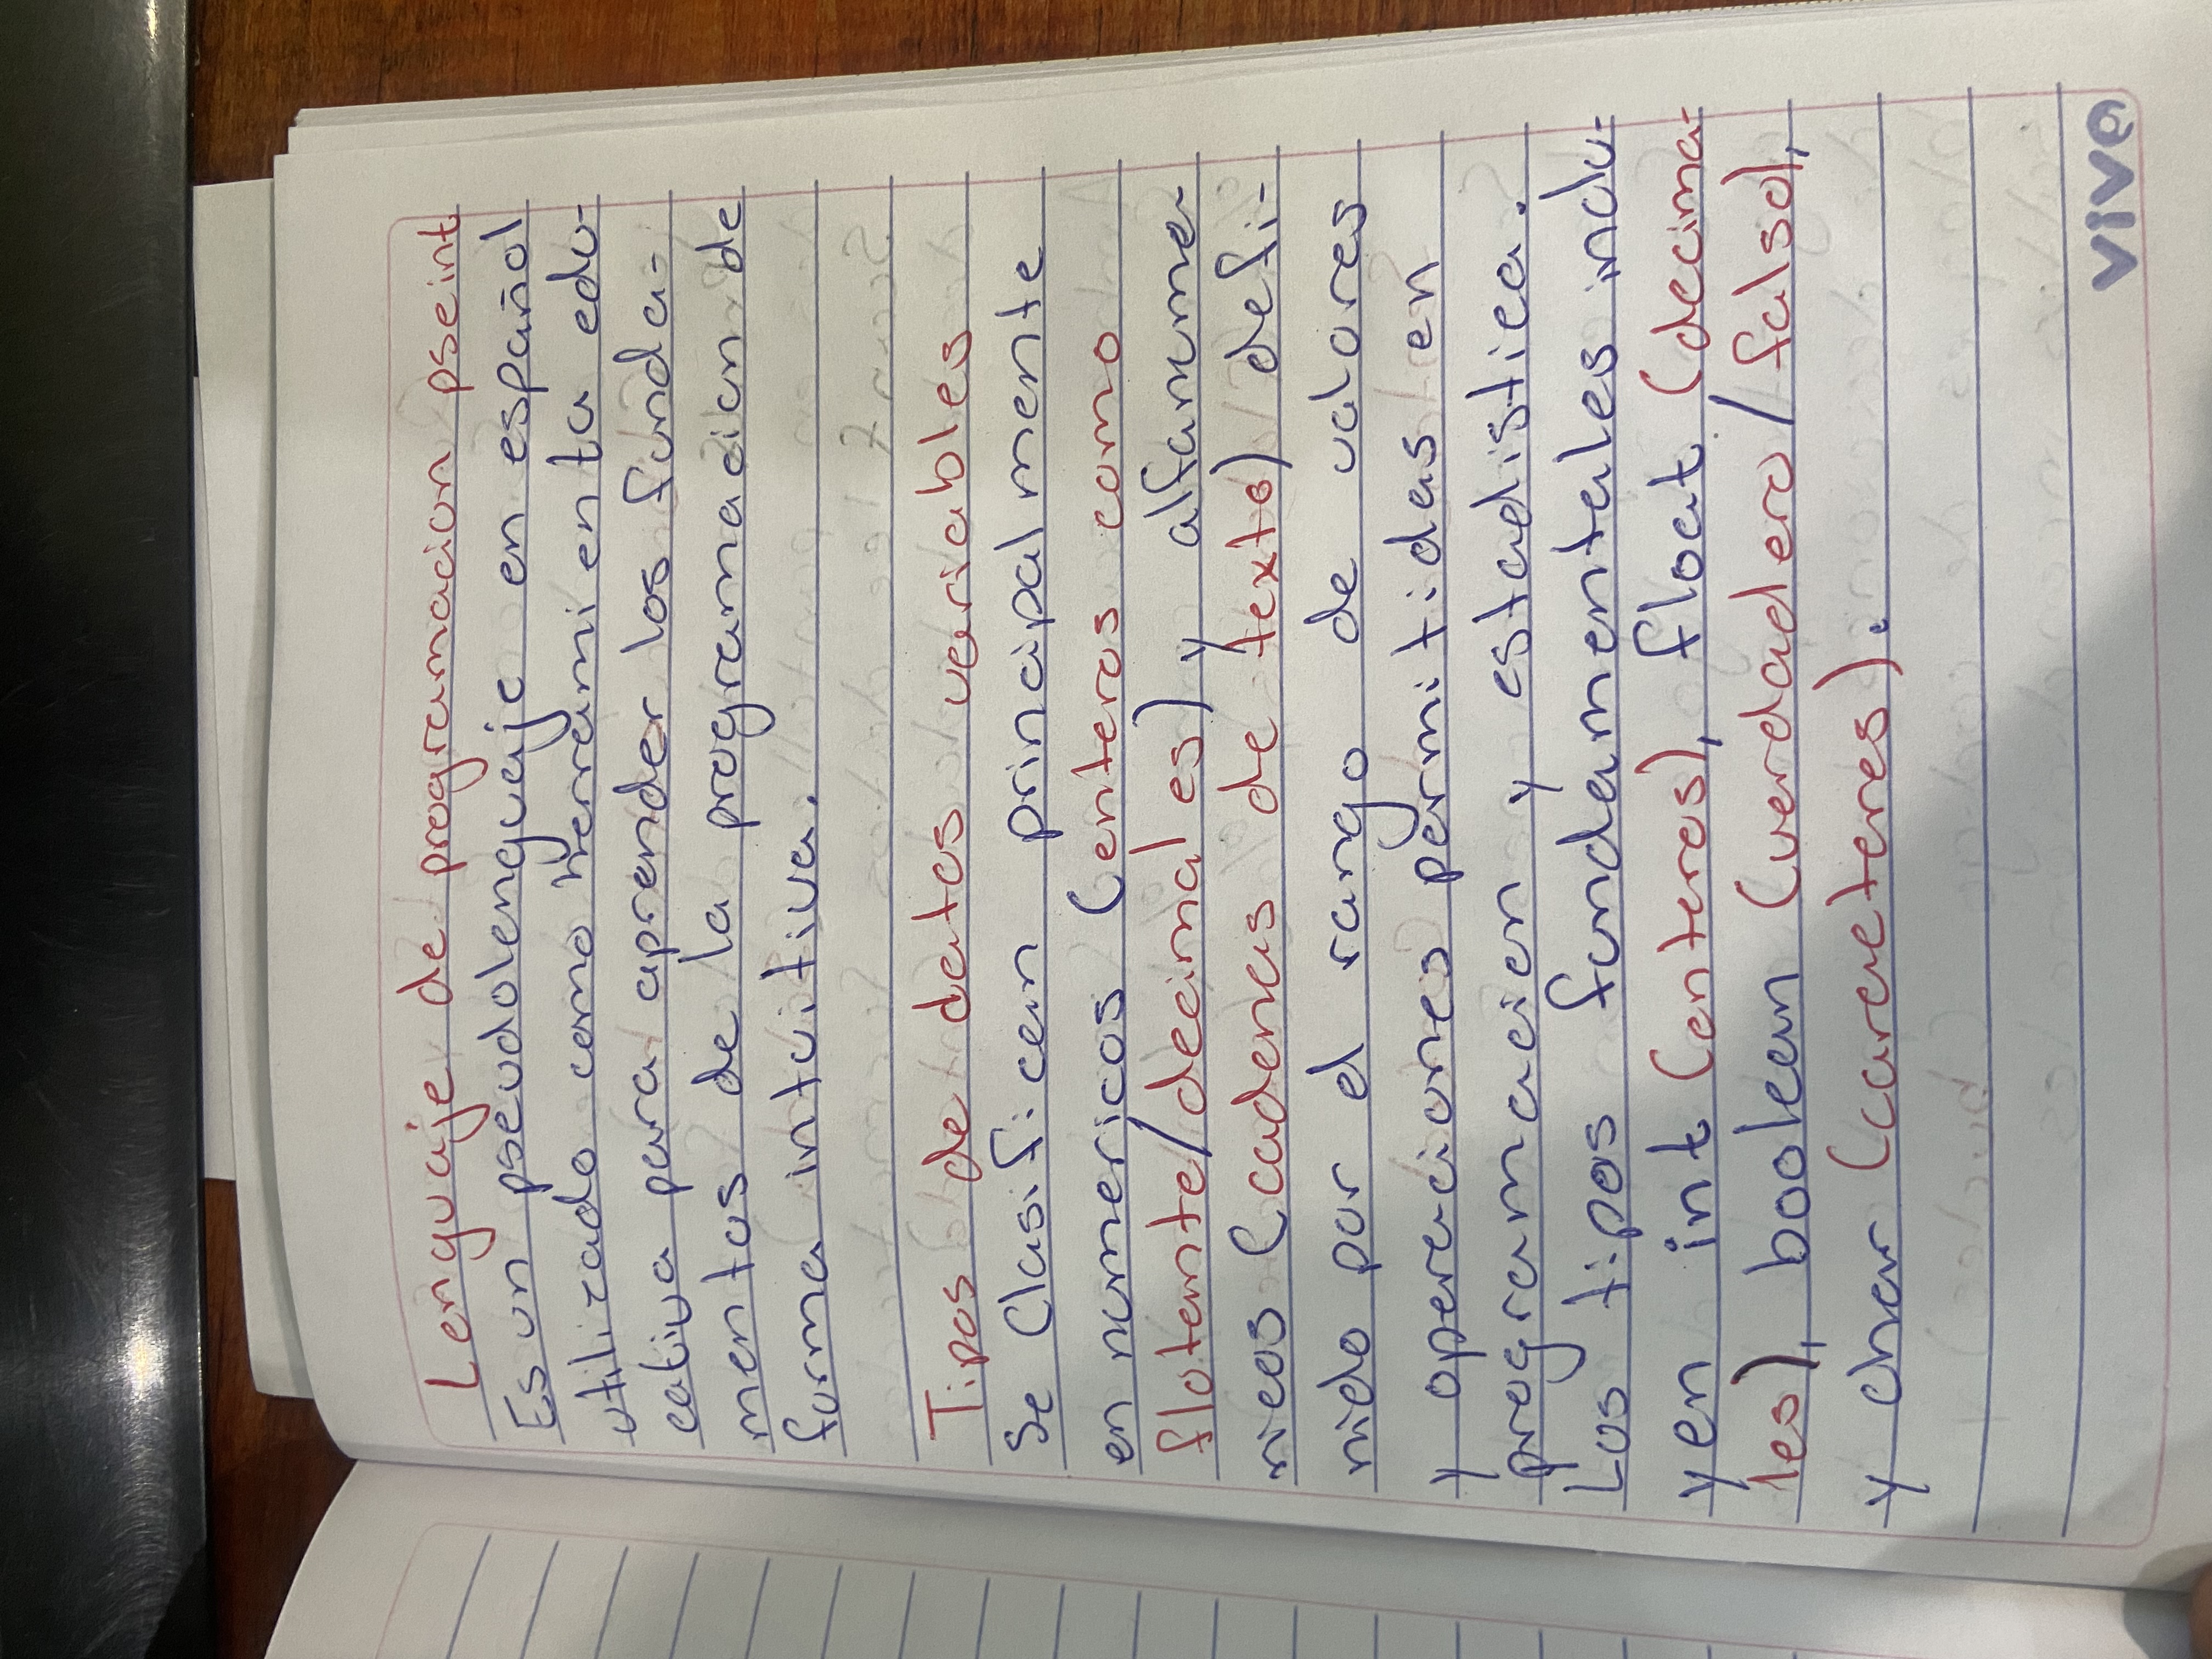 Lenguaje de programacion pseint
Es un pseudolenguaje en español
utilizado como herramienta edu-
cativa para aprender los funda-
mentos de la programacion de
forma intuitiva.
Tipos de datos variables
Se Clasifican principalmente
en numericos (enteros como
flotante/decimales) y alfanume-
ricos (cadenas de texto) defi-
nido por el rango de valores
y operaciones permitidas en
programacion y estadistica.
Los tipos fundamentales inclu-
yen int (enteros), float (decima-
les), boolean (verdadero/falso),
y char (caracteres).
viva